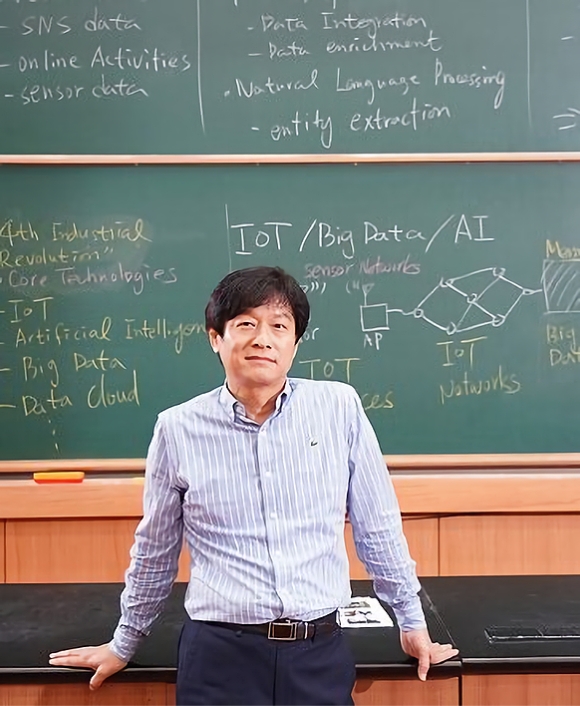 - SNS data
- online Activities
- sensor data
- Data Integration
- Data enrichment
• Natural Language Processing
- entity extraction
"4th Industrial
Revolution"
• Core Technologies
- IoT
- Artificial Intelligen
- Big Data
- Data Cloud
IoT / Big Data / AI
sensor Networks
AP
IoT
IoT
Networks
Big
Data